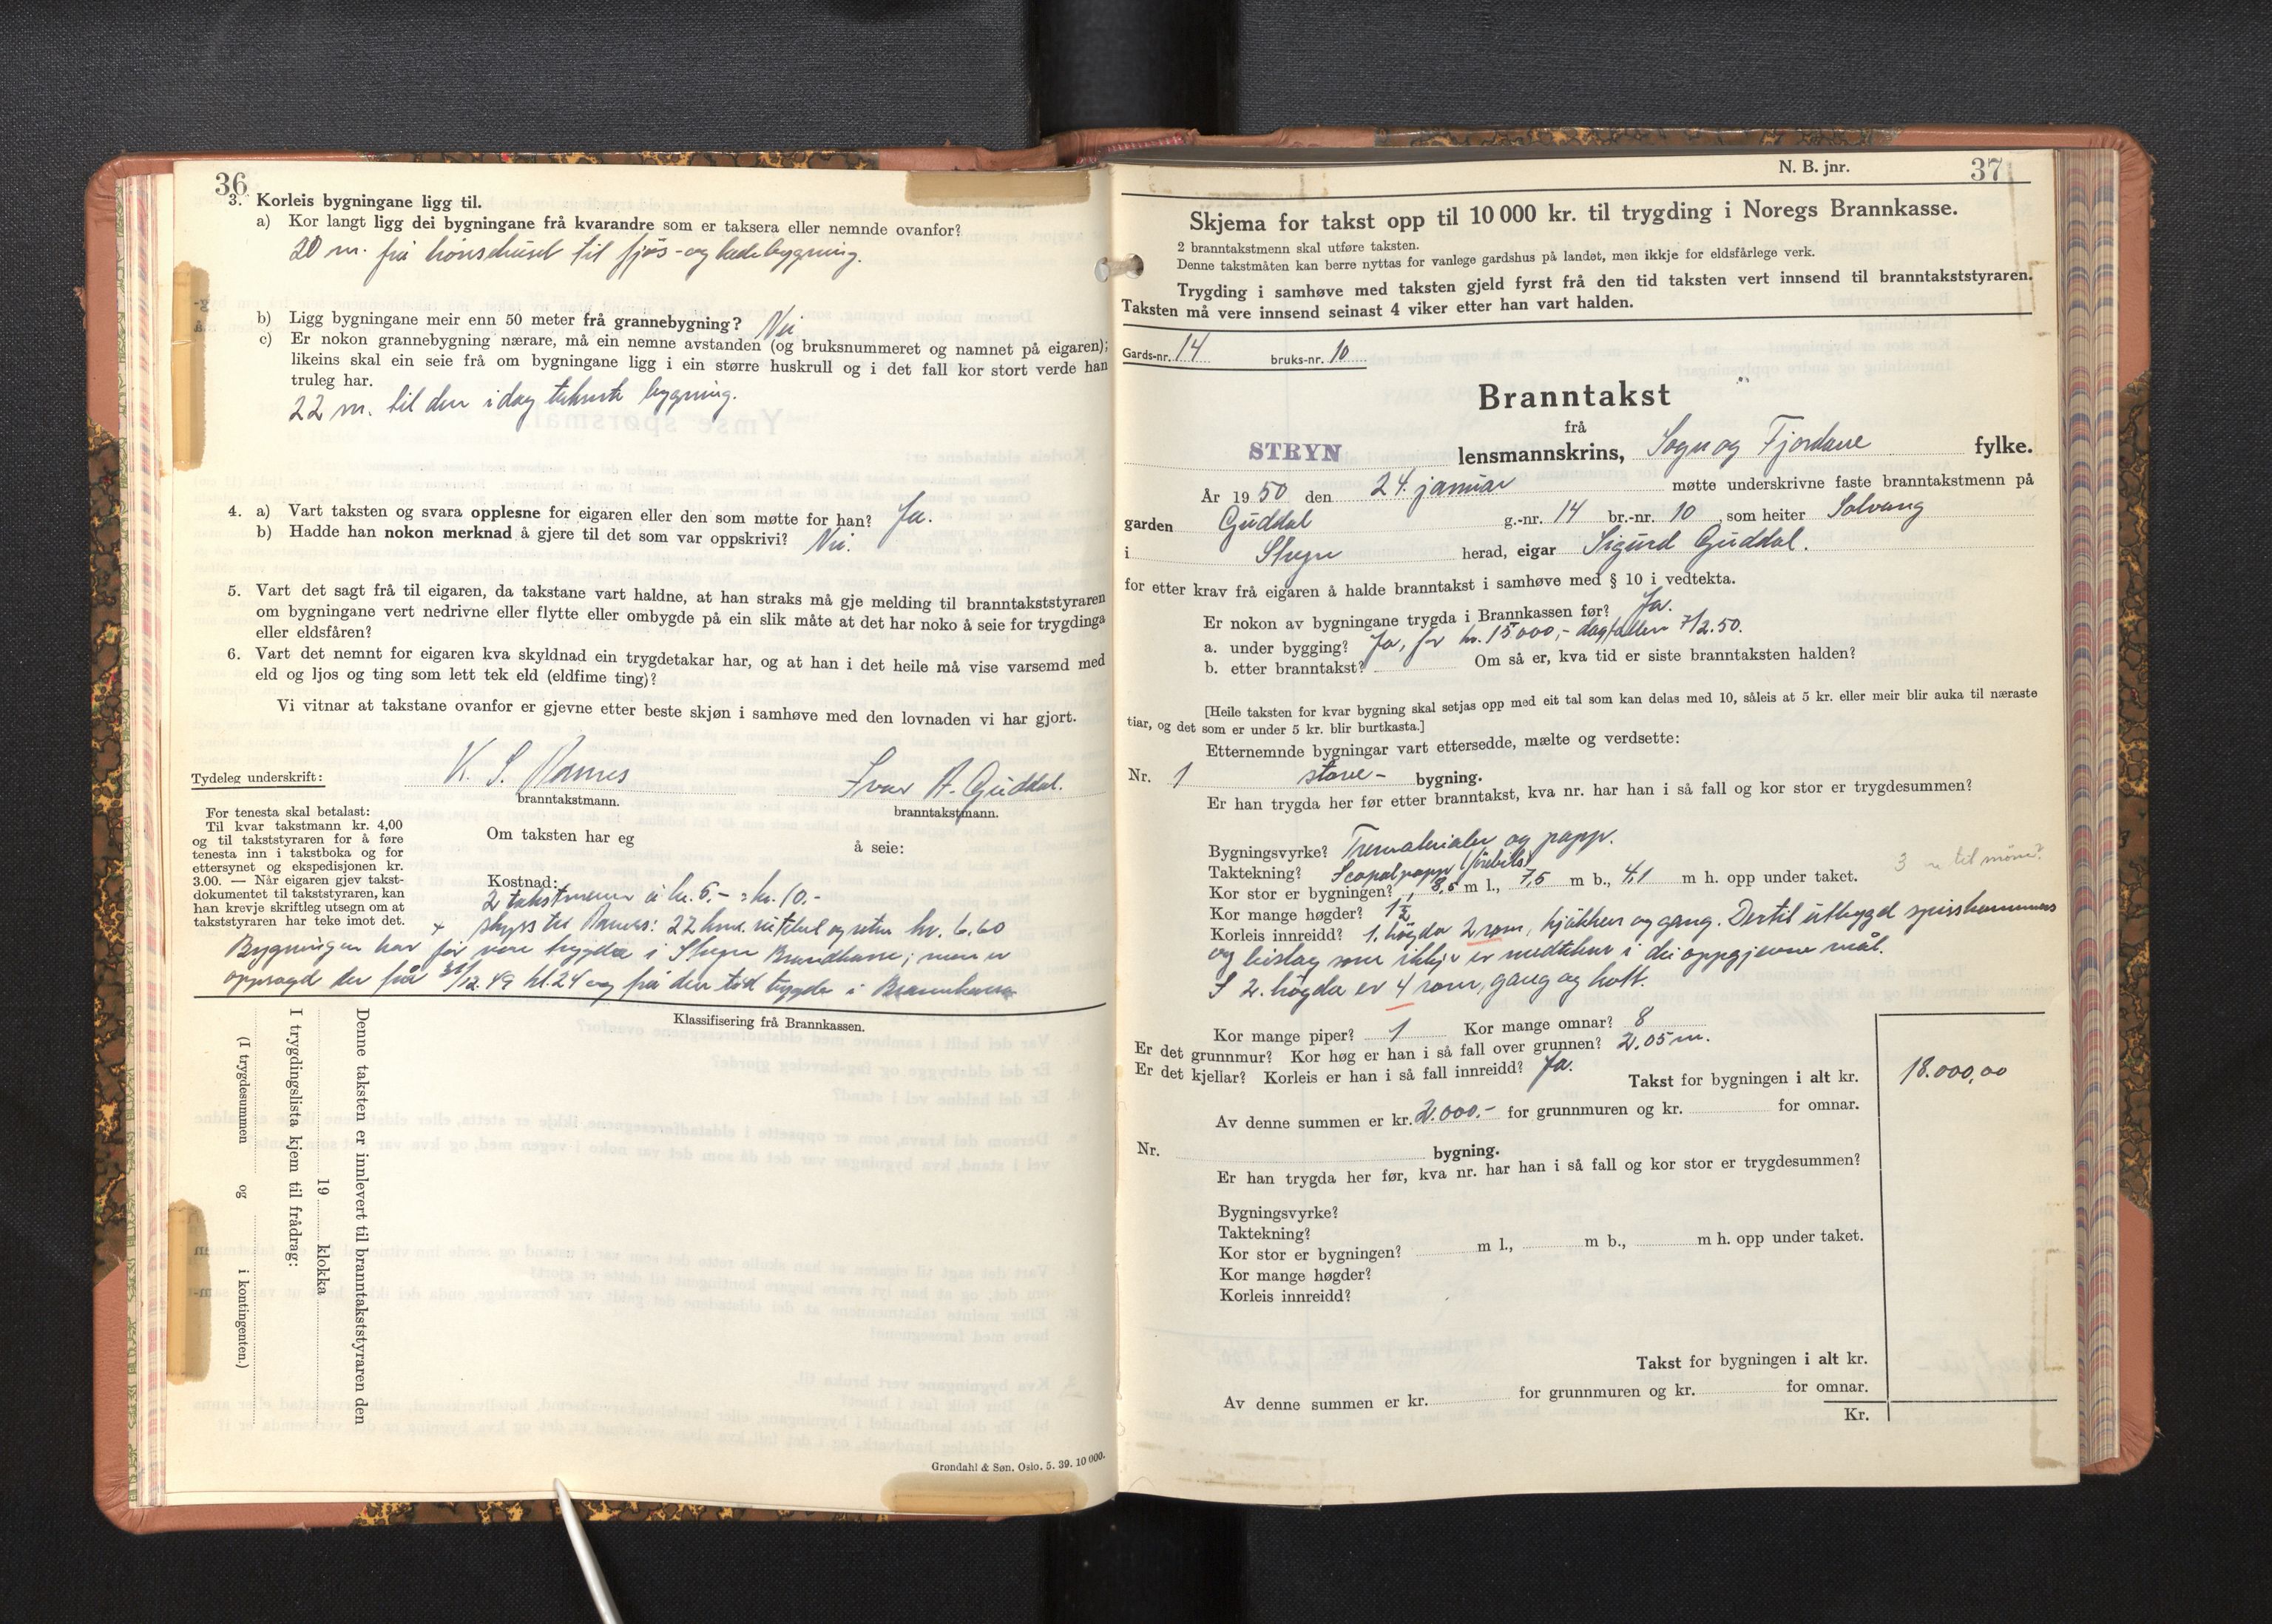 36
3. Korleis bygningane ligg til.
a) Kor langt ligg dei bygningane frå kvarandre som er taksera eller nemnde ovanfor?
20 m. frå hönsehuset til fjös- og ladebygning.
b) Ligg bygningane meir enn 50 meter frå grannebygning? Nei
c) Er nokon grannebygning nærare, må ein nemne avstanden (og bruksnummeret og namnet på eigaren);
likeins skal ein seie frå om bygningane ligg i ein større huskrull og i det fall kor stort verde han
truleg har.
22 m. til den i dag takserte bygning.
4. a) Vart taksten og svara opplesne for eigaren eller den som møtte for han? Ja.
b) Hadde han nokon merknad å gjere til det som var oppskrivi? Nei.
5. Vart det sagt frå til eigaren, da takstane vart haldne, at han straks må gje melding til branntakststyraren
om bygningane vert nedrivne eller flytte eller ombygde på ein slik måte at det har noko å seie for trygdinga
eller eldsfåren?
6. Vart det nemnt for eigaren kva skyldnad ein trygdetakar har, og at han i det heile må vise varsemd med
eld og ljos og ting som lett tek eld (eldfime ting)?
Vi vitnar at takstane ovanfor er gjevne etter beste skjøn i samhøve med den lovnaden vi har gjort.
Tydeleg underskrift: K. S. Ramnes Ivar A. Guddal.
branntakstmann. branntakstmann.
For tenesta skal betalast:
Til kvar takstmann kr. 4,00
og til takststyraren for å føre
tenesta inn i takstboka og for
ettersynet og ekspedisjonen kr.
3.00. — Når eigaren gjev takst-
dokumentet til takststyraren, kan
han krevje skriftleg utsegn om at
takststyraren har teke imot det.
Om taksten har eg å seie:
Kostnad:
2 takstmenn à kr. 5,- = kr. 10.-
+ skyss til Ramnes: 22 km. og retur kr. 6.60
Bygningen har før vore trygda i Stryn Brandkasse; men er
oppsagd der frå 31/12.49 kl. 24 og frå den tid trygda i Brannkassen
Klassifisering frå Brannkassen.
Denne taksten er innlevert til branntakststyraren den
19 klokka
I trygdingslista kjem til frådrag:
(I trygdesummen og i kontingenten.)
Grøndahl & Søn, Oslo. 5. 39. 10 000.
N. B. jnr. 37
Skjema for takst opp til 10 000 kr. til trygding i Noregs Brannkasse.
2 branntakstmenn skal utføre taksten.
Denne takstmåten kan berre nyttas for vanlege gardshus på landet, men ikkje for eldsfårlege verk.
Trygding i samhøve med taksten gjeld fyrst frå den tid taksten vert innsend til branntakststyraren.
Taksten må vere innsend seinast 4 viker etter han vart halden.
Gards-nr. 14 bruks-nr. 10
Branntakst
frå
STRYN lensmannskrins, Sogn og Fjordane fylke.
År 1950 den 24. januar møtte underskrivne faste branntakstmenn på
garden Guddal g.-nr. 14 br.-nr. 10 som heiter Solvang
i Stryn herad, eigar Sigurd Guddal.
for etter krav frå eigaren å halde branntakst i samhøve med § 10 i vedtekta.
Er nokon av bygningane trygda i Brannkassen før? Ja.
a. under bygging? Ja, for kr. 15000,- dagfallen 7/2.50.
b. etter branntakst? Om så er, kva tid er siste branntaksten halden?
[Heile taksten for kvar bygning skal setjas opp med eit tal som kan delas med 10, såleis at 5 kr. eller meir blir auka til næraste
tiar, og det som er under 5 kr. blir burtkasta.]
Etternemnde bygningar vart ettersedde, mælte og verdsette:
Nr. 1 stove- bygning.
Er han trygda her før etter branntakst, kva nr. har han i så fall og kor stor er trygdesummen?
Bygningsvyrke? Trematerialer og papp.
Taktekning? Scopalpapp
Kor stor er bygningen? 8,6 m l., 7,5 m b., 4,1 m h. opp under taket. 3 m til møne?
Kor mange høgder? 1½
Korleis innreidd? 1. høgda 2 rom, kjökken og gang. Dertil utbygd spiskammers
og bislag som ikkje er medtekne i dei oppgjevne mål.
I 2. høgda er 4 rom, gang og kott.
Kor mange piper? 1 Kor mange omnar? 8
Er det grunnmur? Kor høg er han i så fall over grunnen? 2,05 m.
Er det kjellar? Korleis er han i så fall innreidd? Ja.
Takst for bygningen i alt kr. 18.000,00
Av denne summen er kr. 2.000.- for grunnmuren og kr. for omnar.
Nr. bygning.
Er han trygda her før, kva nr. har han i så fall og kor stor er trygdesummen?
Bygningsvyrke?
Taktekning?
Kor stor er bygningen? m l., m b., m h. opp under taket.
Kor mange høgder?
Korleis innreidd?
Takst for bygningen i alt kr.
Av denne summen er kr. for grunnmuren og kr. for omnar.
Kr.